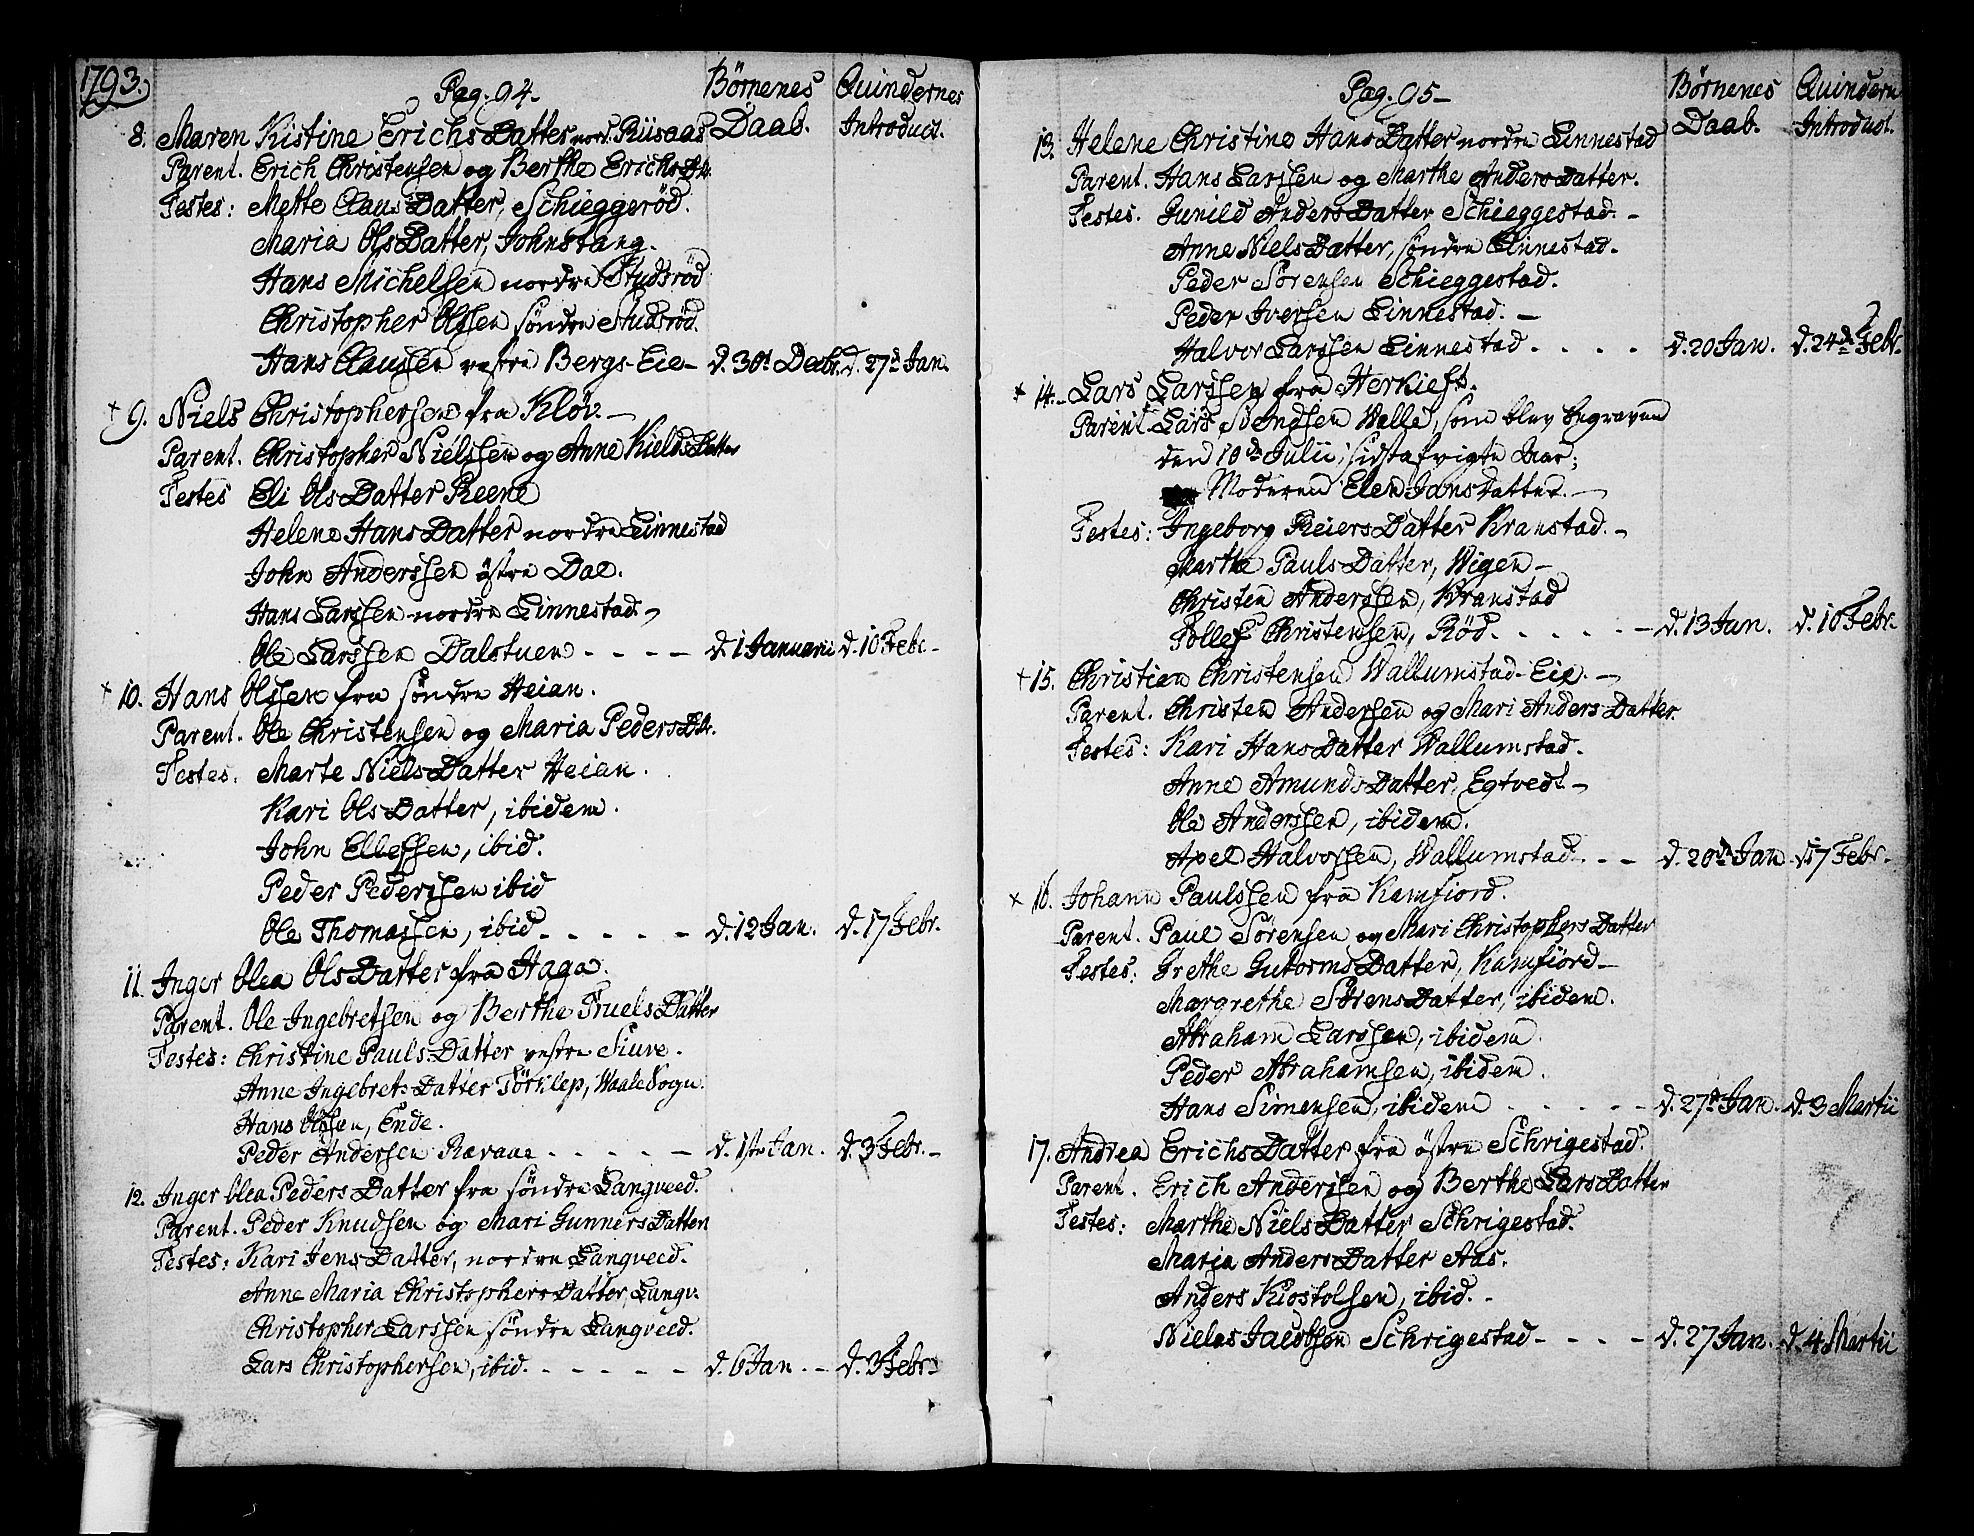 1793.
Pag. 94.
Børnenes Daab.
Quindernes Introduct.
8. Maren Kistine Erichs Datter nord. Riisaas
Parent. Erich Christensen og Berthe Erichs Dtr.
Testes: Mette Claus Datter, Schieggerød.
Maria Ols Datter, Johnstang.
Hans Michelsen nordre Studsrød
Christopher Olssen søndre Studsrød.
Hans Claussen vestre Bergs-Eie - d. 30t Decbr. d. 27d Jan.
+ 9. Niels Christophersen fra Kløv. -
Parent. Christopher Nielssen og Anne Kields Datter
Testes Eli Ols Datter Reene
Helene Hans Datter nordre Linnestad
John Anderssen østre Dal.
Hans Larssen nordre Linnestad -
Ole Larssen Dalstuen - - - - d. 1 Januarii d. 10 Febr -
+ 10. Hans Olssen fra søndre Heian.
Parent. Ole Christensen og Maria Peders Dtr.
Testes. Marte Niels Datter Heian.
Kari Ols Datter, ibidem.
John Ellefsen, ibid.
Peder Pederssen ibid
Ole Thomassen, ibid. - - - - - d. 12 Jan. d. 17 Febr.
11. Inger Olea Ols Datter fra Haga.
Parent. Ole Ingebretsen og Berthe Truels Datter
Testes: Christine Pauls Datter vestre Siuve.
Anne Ingebrets Datter Törklep, Waale Sogn.
Hans Olssen, Ende.
Peder Andersen Ravaae - - - - - d. 1ste Jan. d. 3 Febr. -
12. Inger Olea Peders Datter fra søndre Langveed.
Parent. Peder Knudsen og Mari Gunners Datter
Testes: Kari Jens Datter, nordre Langveed.
Anne Maria Christophers Datter, Langv:
Christopher Larssen søndre Langveed.
Lars Christophersen, ibid. - - - - - d. 6 Jan. - d. 3 Febr.
Pag. 95 -
Børnenes Daab.
Quindern Introduct.
13. Helene Christine Hans Datter nordre Linnestad
Parent. Hans Larssen og Marthe Anders Datter.
Testes. Gunild Anders Datter Schieggestad. -
Anne Niels Datter, søndre Linnestad.
Peder Sørensen Schieggestad.
Peder Iversen Linnestad. -
Halvor Larssen Linnestad . . . . d. 20 Jan. d. 24de Febr.
+ 14. Lars Larssen fra Herkieft.
Parent. Lars Svendsen Walle, som blev begraven
den 10de Julii, sidstafvigte Aar;
Moderen Elen Jans Datter. -
Testes: Ingeborg Reiers Datter Kranstad. -
Marthe Pauls Datter, Wigen -
Christen Anderssen, Kranstad
Tollef Christenssen, Rød. . . . . . - d. 13 Jan. d. 10 Febr.
+ 15. Christian Christensen Wallumstad-Eie. -
Parent. Christen Andersen og Mari Anders Datter.
Testes: Kari Hans Datter Wallumstad.
Anne Amunds Datter, Egtvedt -
Ole Anderssen, ibidem.
Axel Halvorssen, Wallumstad. - - d. 20de Jan d. 17 Febr.
+ 16. Johann Paulssen fra Kamfiord.
Parent. Paul Sørensen og Mari Christophers Datter
Testes: Grethe Gutorms Datter, Kamfiord -
Margrethe Sørens Datter, ibidem.
Abraham Larssen, ibidem.
Peder Abrahamsen, ibidem.
Hans Simensen, ibidem . . . . . - d. 27de Jan. d. 3 Martii
17. Andrea Erichs Datter fra østre Schrigestad.
Parent. Erich Anderssen og Berthe Lars Datter
Testes: Marthe Niels Datter, Schrigestad.
Maria Anders Datter Aas.
Anders Kiostolsen, ibid. -
Nielas Jacobsøn Schrigestad - - - - d. 27 Jan. d. 4 Martii